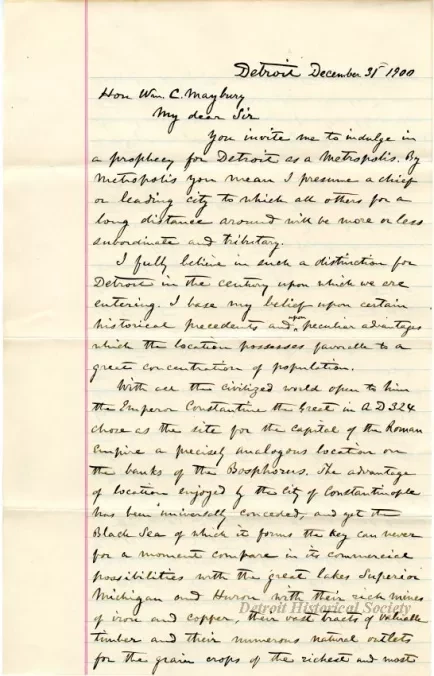 Detroit December 31st 1900
Hon Wm. C. Maybury
My dear Sir
You invite me to indulge in
a prophecy for Detroit as a Metropolis. By
Metropolis you mean I presume a chief
or leading city to which all others for a
long distance around will be more or less
subordinate and tributary.
I fully believe in such a distinction for
Detroit in the century upon which we are
entering. I base my belief upon certain
historical precedents and upon peculiar advantages
which the location possesses favorable to a
great concentration of population.
With all the civilized world open to him
the Emperor Constantine the Great in A D 324
chose as the site for the capital of the Roman
Empire a precisely analogous location on
the banks of the Bosphorus. The advantage
of location enjoyed by the City of Constantinople
has been universally conceded, and yet the
Black Sea of which it forms the key can never
for a moment compare in its commercial
possibilities with the great lakes Superior
Michigan and Huron with their rich mines
Detroit Historical Society
of iron and copper, their vast tracts of valuable
timber and their numerous natural outlets
for the grain crops of the richest and most